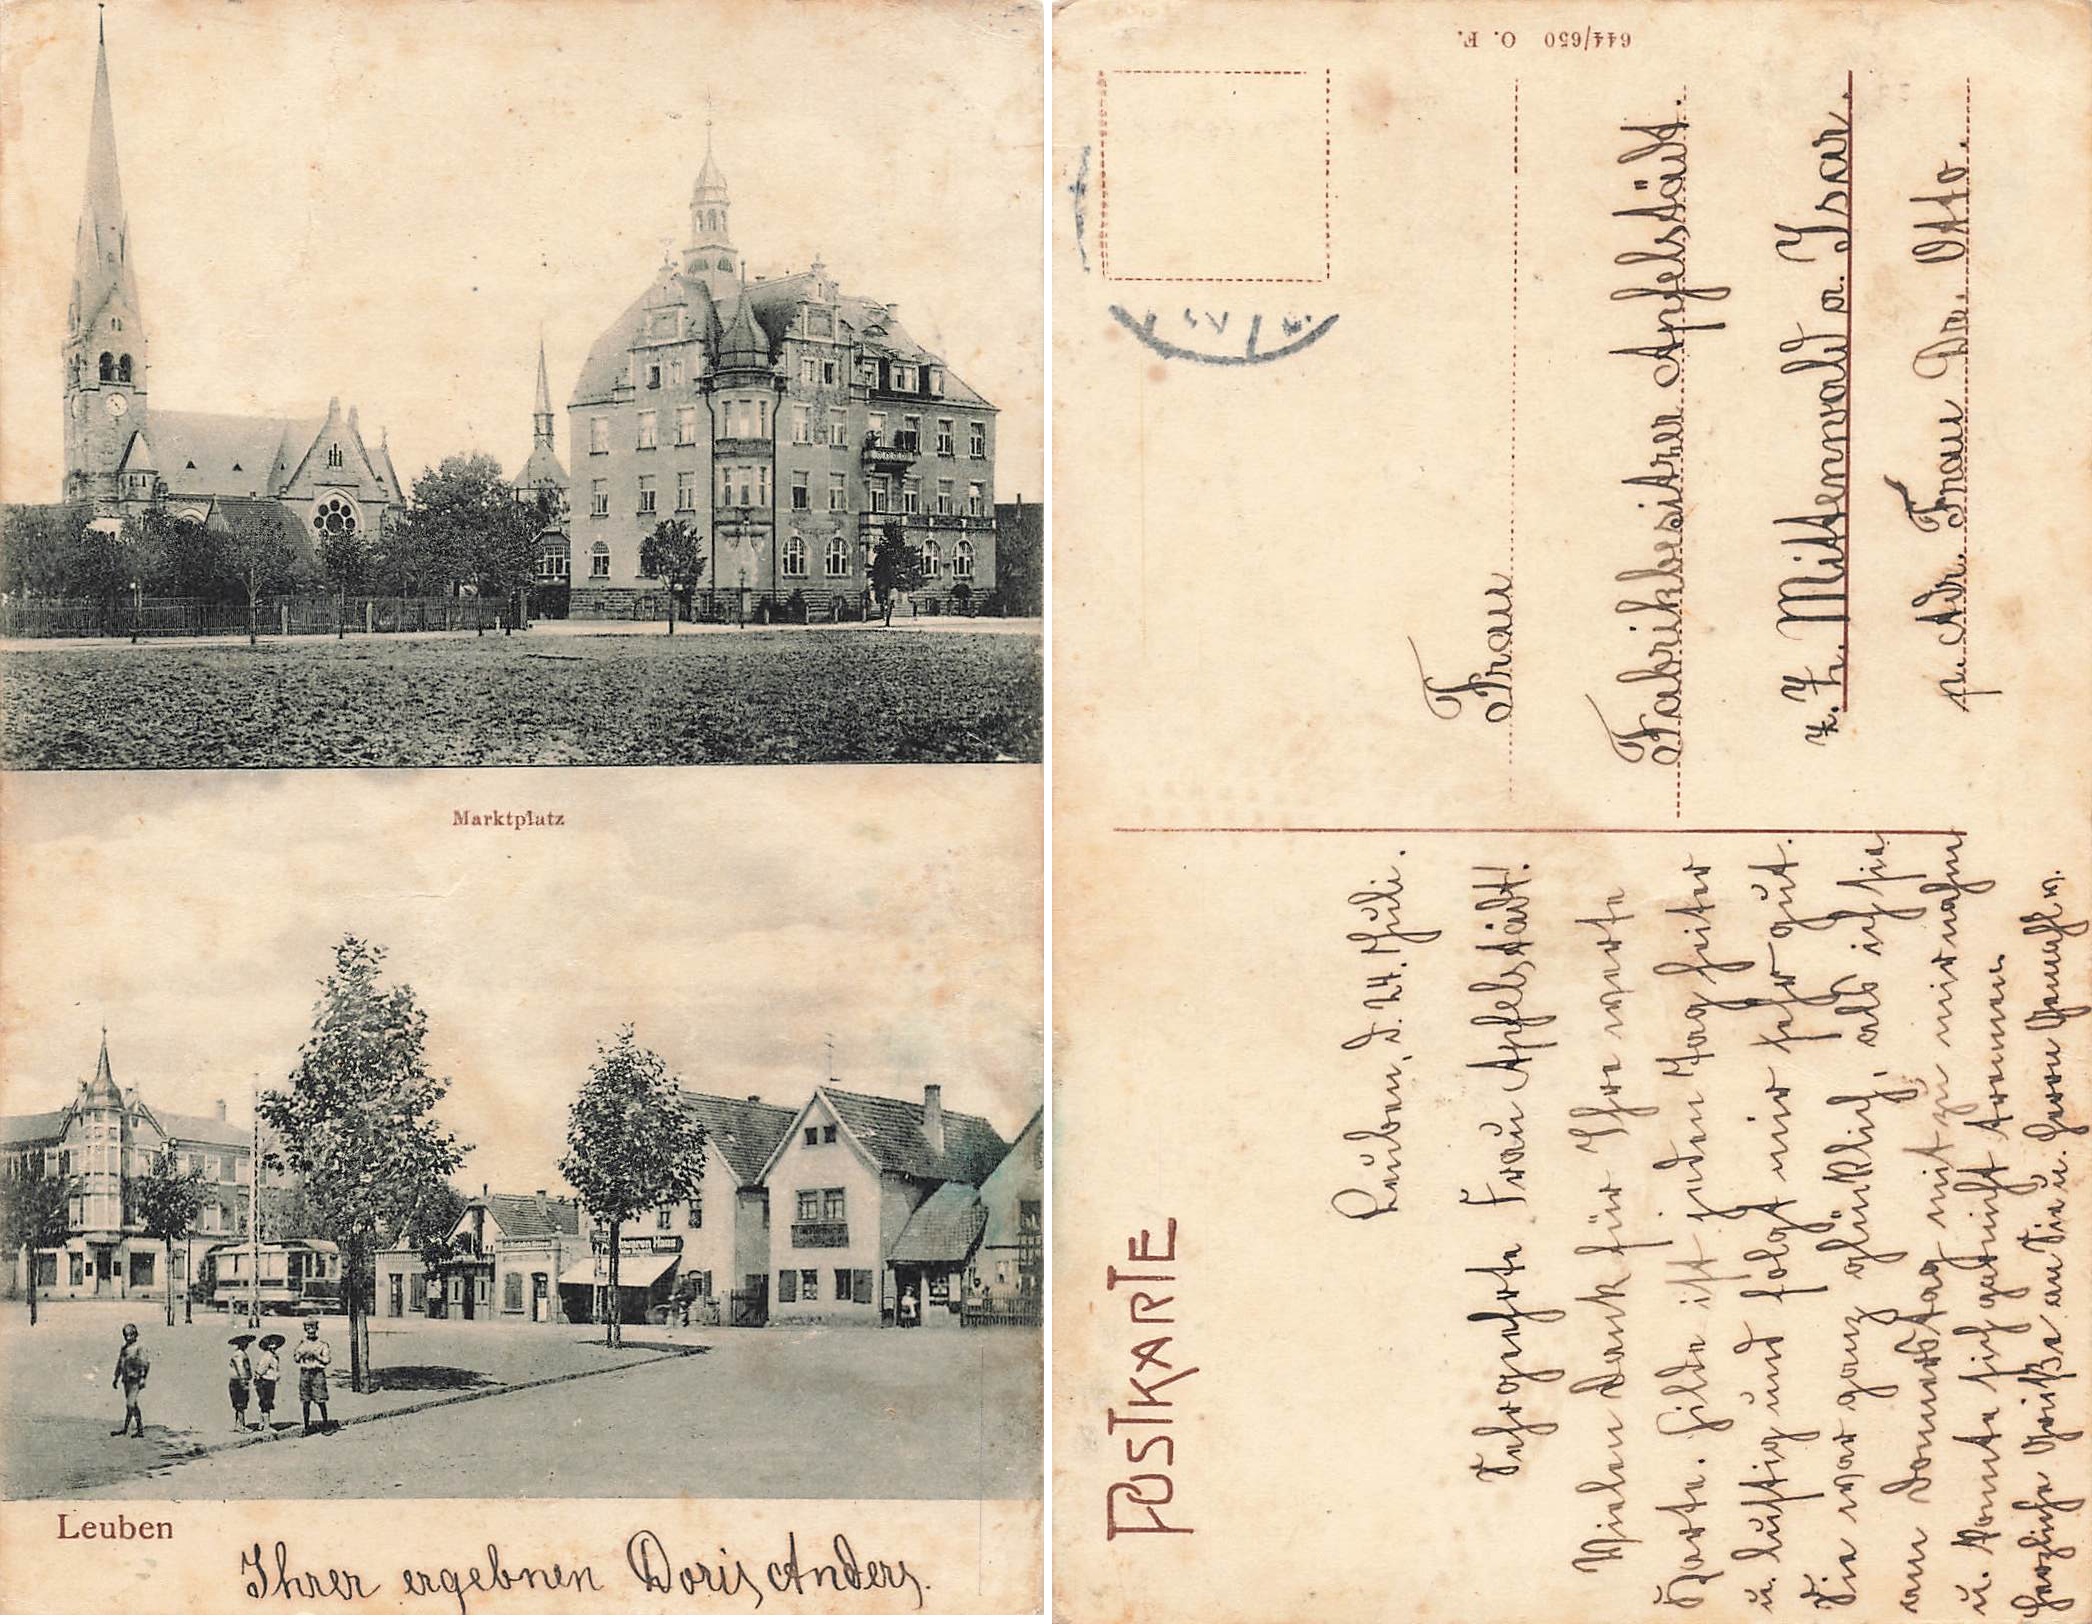 Marktplatz
Leuben
Ihrer ergebnen Doris Anders.
644/650 O. F.
POSTKARTE
Frau
Fabrikbesitzer Apfelstädt.
z. Z. Mittenwald a. Isar.
p. Adr. Frau Dr. Otto.
Leuben, d. 24. Juli.
Sehrgeehrte Frau Apfelstädt!
Vielen Dank für Ihre werte
Karte. Hilde ist jeden Tag heiter
u. lustig und folgt mir sehr gut.
Sie war ganz glücklich, als ich sie
am Donnerstag mit zu mir nahm
u. konnte sich gar nicht trennen
Herzliche Grüße an Sie u. Herrn Gemahl v.